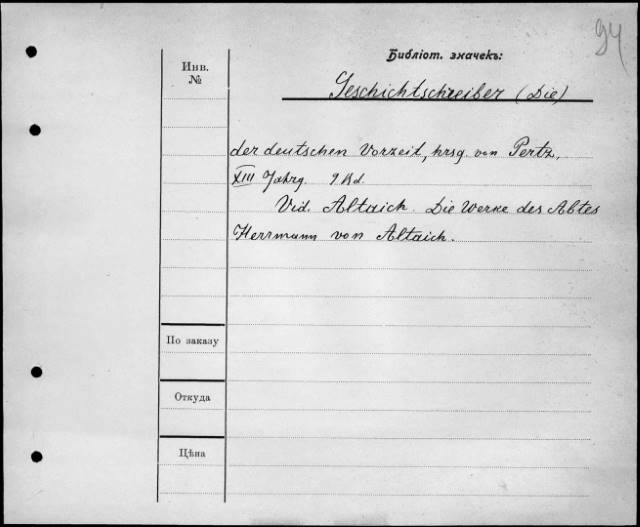 94
Библіот. значекъ:
Инв.
№
Geschichtschreiber (Die)
der deutschen Vorzeit, hrsg. von Pertz,
XIII Jahrg. 9. Bd.
Vid. Altaich. Die Werke des Abtes
Herrmann von Altaich.
По заказу
Откуда
Цѣна